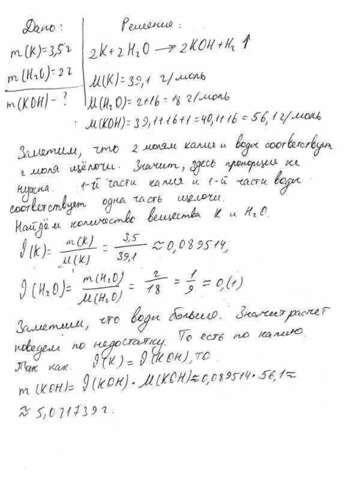 Дано: Решение:
m(K)=3,5г 2K+2H₂O → 2KOH+H₂↑
m(H₂O)=2г M(K)=39,1 г/моль
m(KOH)-? M(H₂O)=2+16=18 г/моль
M(KOH)=39,1+16+1=40,1+16=56,1 г/моль
Заметим, что 2 молям калия и воды соответствует
2 моля щёлочи. Значит, здесь пропорция не
нужна. 1-й части калия и 1-й части воды
соответствует одна часть щелочи.
Найдём количество вещества K и H₂O.
ν(K)= m(K)/M(K) = 3,5/39,1 ≈ 0,089514,
ν(H₂O)= m(H₂O)/M(H₂O) = 2/18 = 1/9 = 0,(1)
Заметим, что воды больше. Значит расчет
поведем по недостатку. То есть по калию.
Так как ν(K)=ν(KOH), то
m(KOH)=ν(KOH)·M(KOH)≈0,089514·56,1≈
≈5,021739г.